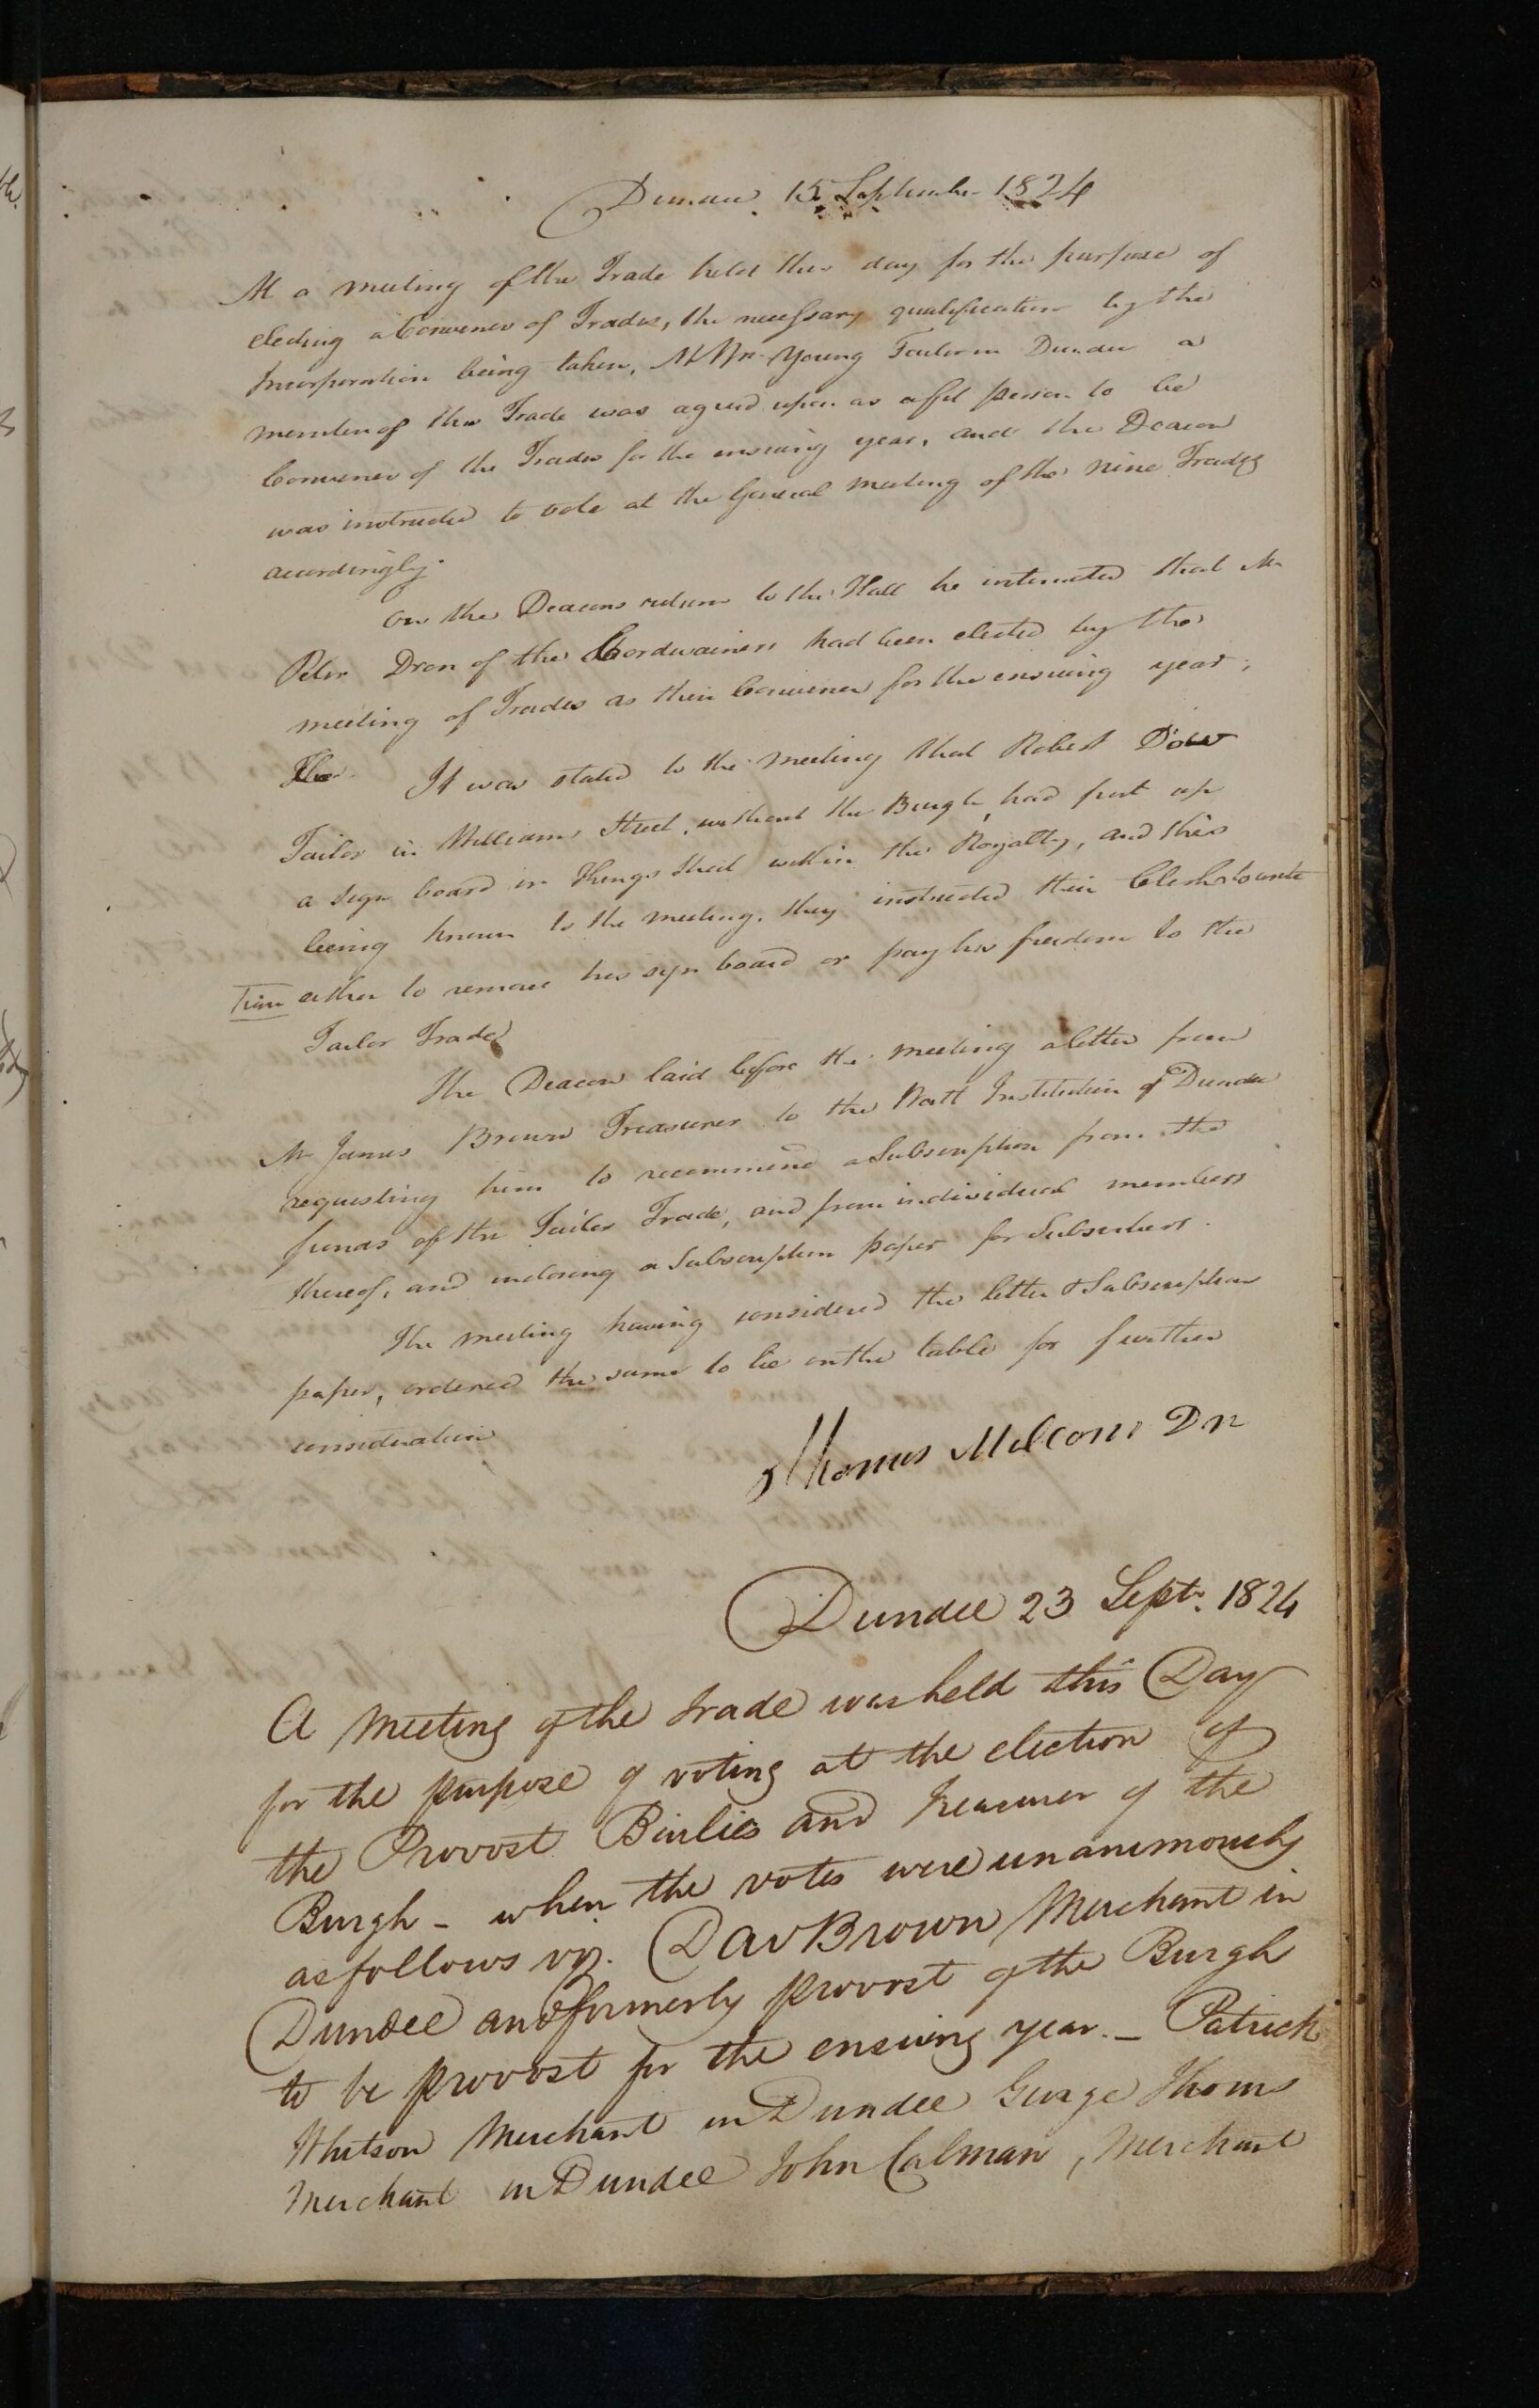 Dundee 15 September 1824
At a meeting of the Trade held this day for the purpose of
electing a Convener of Trades, the necessary qualification by the
Incorporation being taken, Mr Wm Young Tailor in Dundee a
member of this Trade was agreed upon as a fit person to be
Convener of the Trades for the ensuing year, and the Deacon
was instructed to vote at the General meeting of the nine Trades
accordingly.
On the Deacons return to the Hall he intimated that Mr
Peter Dron of the Cordwainers had been elected by the
meeting of Trades as their Convener for the ensuing year.
The It was stated to the meeting that Robert Dow
Tailor in Williams Street, without the Burgh, had put up
a sign board in Kings Street within the Royalty, and this
being known to the meeting, they instructed their Clerk to write
him either to remove his sign board or pay his freedom to the
Tailor Trade
The Deacon laid before the meeting a letter from
Mr James Brown Treasurer to the Watt Institution of Dundee
requesting him to recommend a Subscription from the
funds of the Tailor Trade, and from individual members
thereof, and inclosing a Subscription paper for Subscribers.
The meeting having considered the letter & Subscription
paper, ordered the same to lie on the table for further
consideration
Thomas Malcom Dn
Dundee 23 Septr. 1824
A Meeting of the Trade was held this Day
for the purpose of voting at the election of
the Provost Bailies and Treasurer of the
Burgh - when the votes were unanimously
as follows viz. Dav Brown Merchant in
Dundee and formerly provost of the Burgh
to be provost for the ensuing year. - Patrick
Whitson Merchant in Dundee George Thoms
Merchant in Dundee John Calman, Merchant